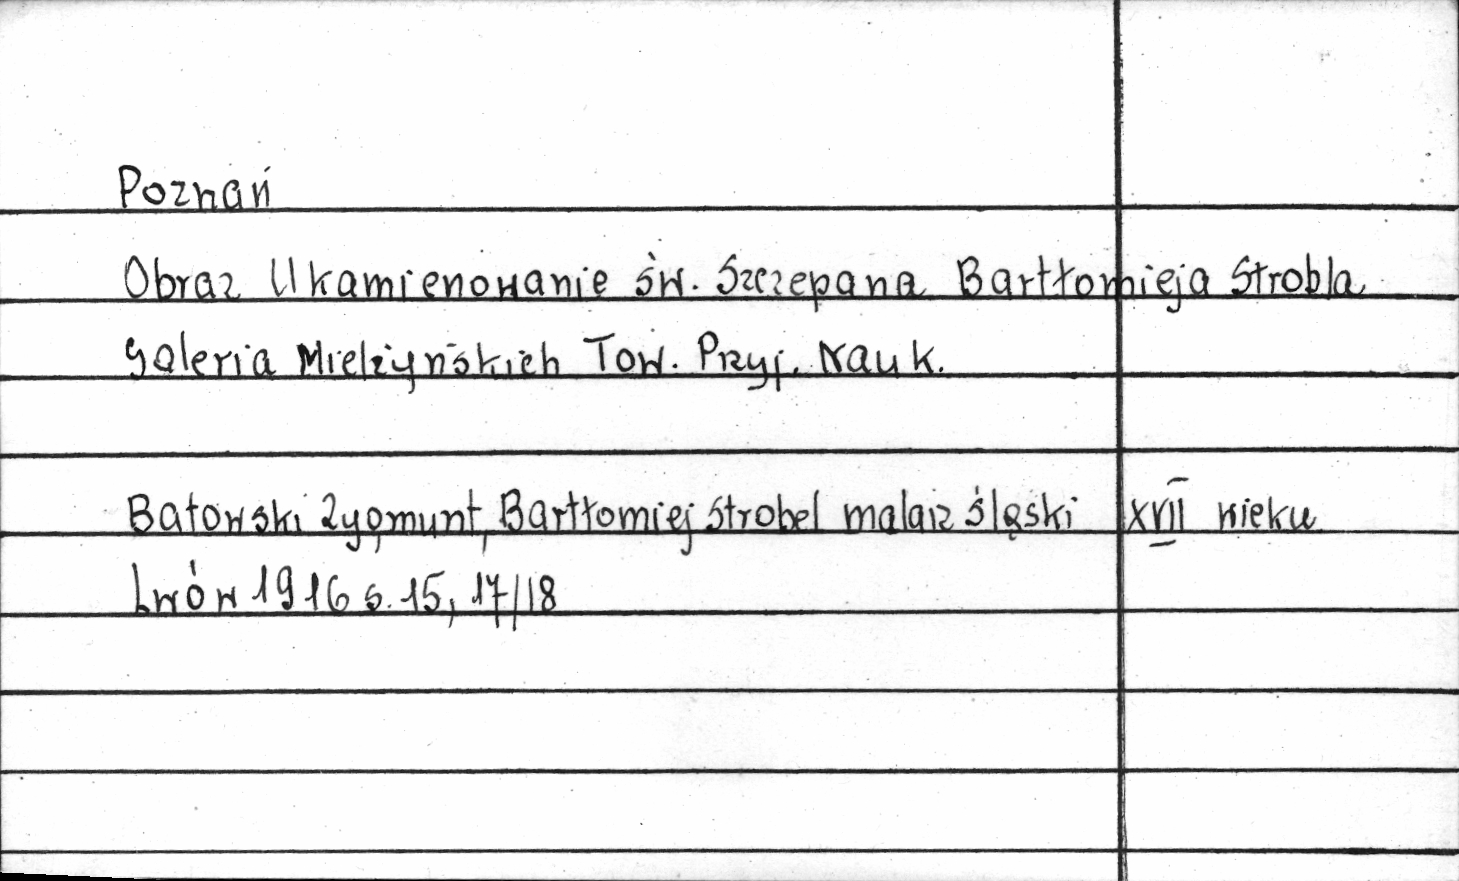 Poznań
Obraz Ukamienowanie św. Szczepana Bartłomieja Strobla
Galeria Mielżyńskich Tow. Przyj. Nauk.
Batowski Zygmunt, Bartłomiej Strobel malarz śląski XVII wieku
Lwów 1916 s. 15, 17/18